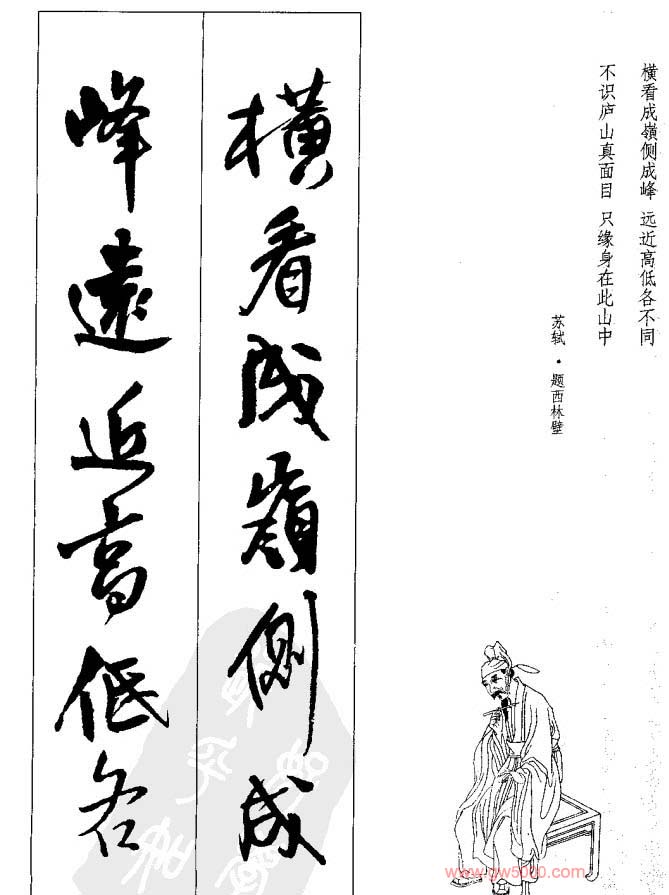 横看成嶺侧成峰 远近高低各不同
不识庐山真面目 只缘身在此山中
苏轼·题西林壁
橫看成嶺側成
峰遠近高低各
www.gw5000.com